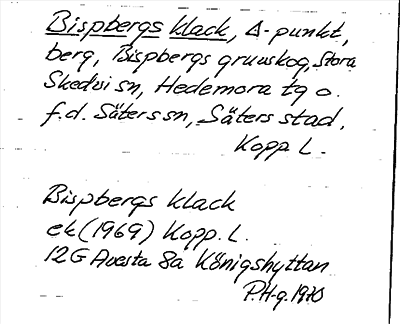 Bispbergs klack, Δ-punkt,
berg, Bispbergs gruvskog, Stora
Skedvi sn, Hedemora tg o.
f.d. Säters sn, Säters stad,
Kopp. L.
Bispbergs klack
ek (1969) Kopp. L.
12G Avesta 8a Königshyttan
P.H-g. 1970